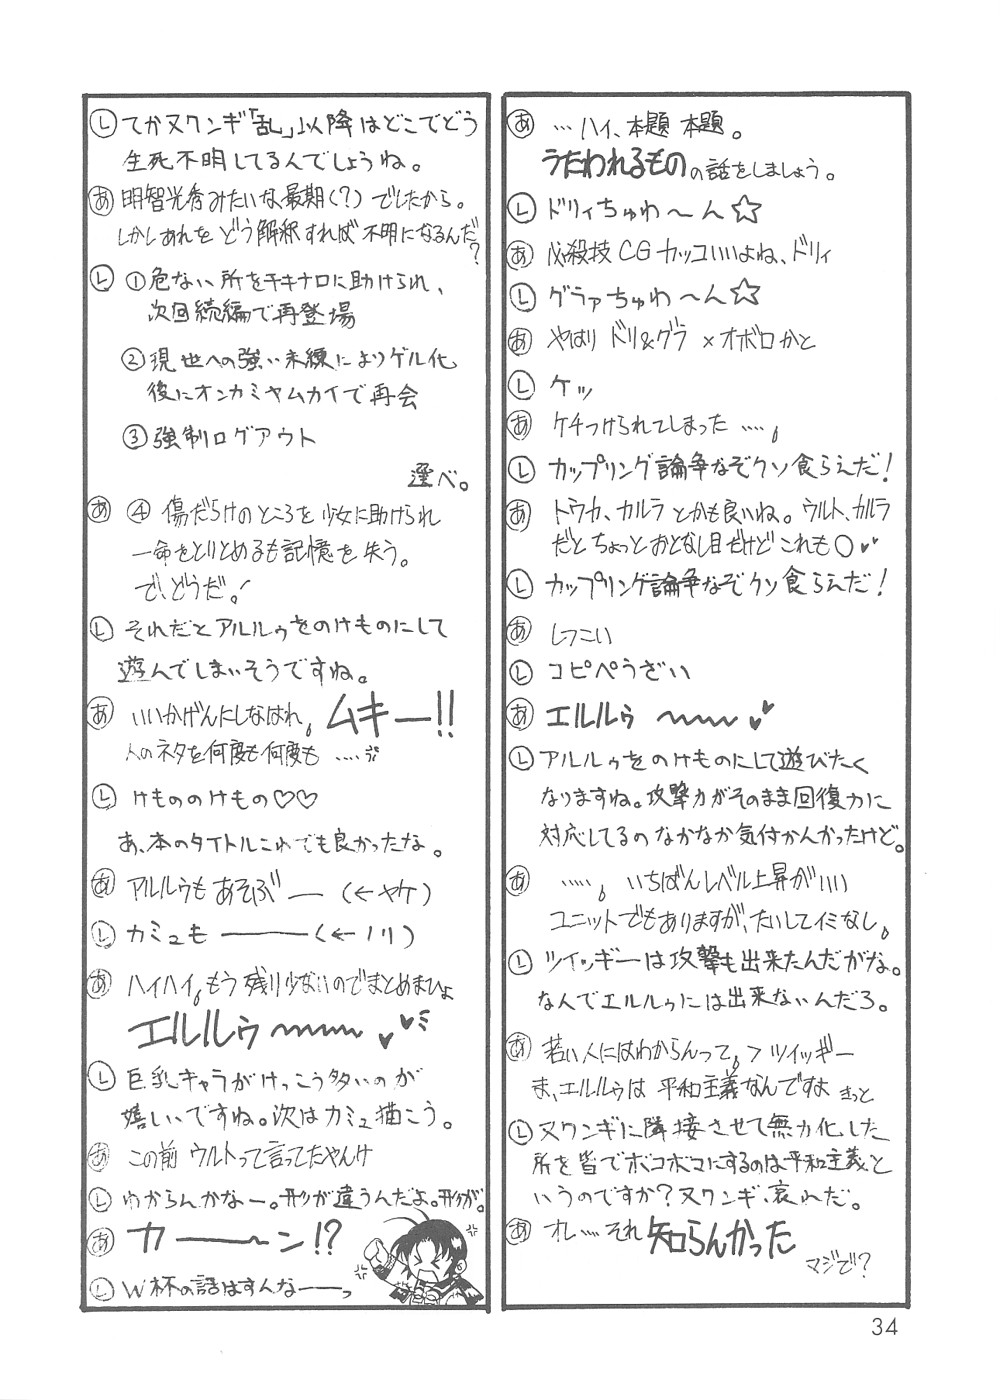 あ …ハイ、本題 本題。
うたわれるものの話をしましょう。
L ドリィちゅわ〜ん☆
あ 必殺技CGカッコいいよね、ドリィ
L グラァちゅわ〜ん☆
あ やはり ドリ&グラ×オボロかと
L ケッ
あ ケチつけられてしまった ……。
L カップリング論争なぞクソ食らえだ!
あ トウカ、カルラとかも良いね。ウルト、カルラ
だとちょっとおとなし目だけどこれも○♥♥
L カップリング論争なぞクソ食らえだ!
あ しつこい
L コピペうざい
あ エルルゥ 〜〜〜 ♥♥
L アルルゥをのけものにして遊びたく
なりますね。攻撃力がそのまま回復力に
対応してるのなかなか気付かんかったけど。
あ ……。いちばんレベル上昇がいい
ユニットでもありますが、たいしてイミなし。
L ツイッギーは攻撃も出来たんだがな。
なんでエルルゥには出来ないんだろ。
あ 若い人にはわからんって。>ツイッギー
ま、エルルゥは 平和主義なんですよ きっと
L ヌワンギに隣接させて無力化した
所を皆でボコボコにするのは平和主義と
いうのですか?ヌワンギ、哀れだ。
あ オレ…それ知らんかった
マジで?
L てかヌワンギ「乱」以降はどこでどう
生死不明してるんでしょうね。
あ 明智光秀みたいな最期(?)でしたから。
しかしあれをどう解釈すれば不明になるんだ?
L ①危ない所をチキナロに助けられ、
次回続編で再登場
②現世への強い未練によりゲル化
後にオンカミヤムカイで再会
③強制ログアウト
選べ。
あ ④ 傷だらけのところを少女に助けられ
一命をとりとめるも記憶を失う。
で、どうだ!
L それだとアルルゥをのけものにして
遊んでしまいそうですね。
あ いいかげんにしなはれ。ムキー!!
人のネタを何度も何度も ……
L けもののけもの♡♡
あ、本のタイトルこれでも良かったな。
あ アルルゥもあそぶ—(←ヤケ)
L カミュも ———(←ノリ)
あ ハイハイ。もう残り少ないのでまとめまひょ
エルルゥ 〜〜〜 ♥♥
L 巨乳キャラがけっこう多いのが
嬉しいですね。次はカミュ描こう。
あ この前 ウルトって言ってたやんけ
L わからんかなー。形が違うんだよ。形が。
あ カ———ン!?
L W杯の話はすんな——っ
34